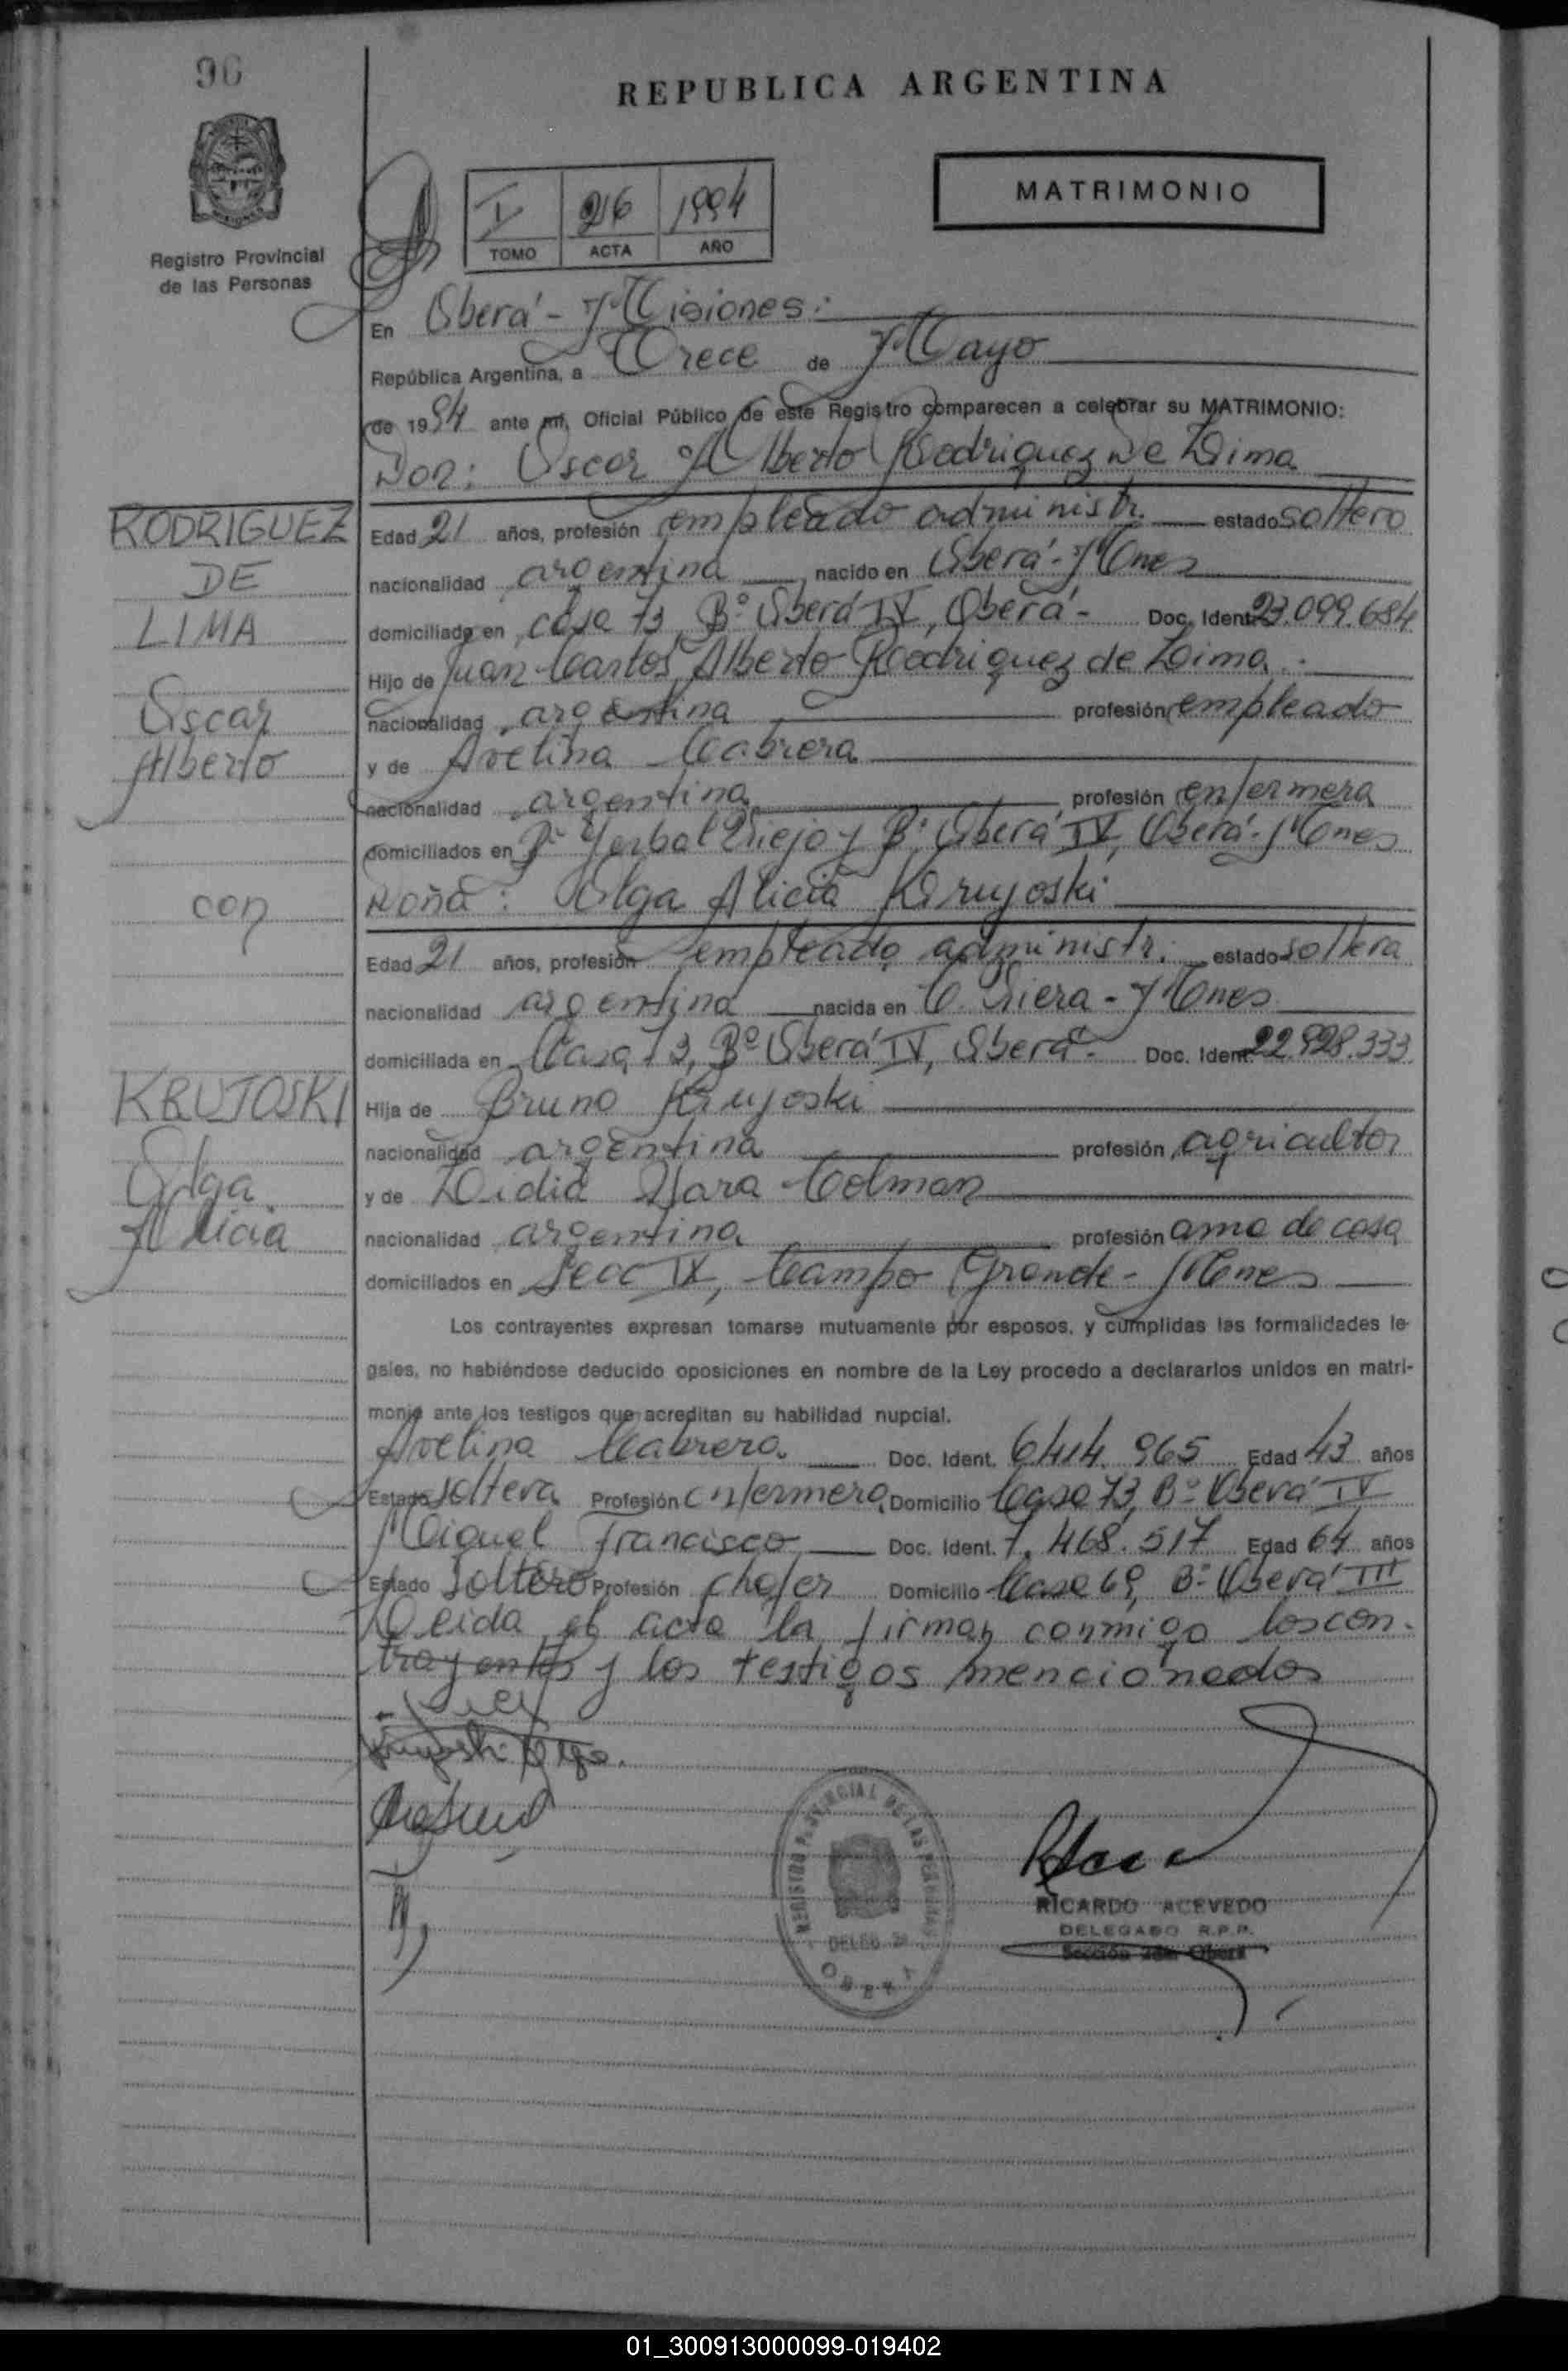 96
REPUBLICA ARGENTINA
MATRIMONIO
I 216 1994
TOMO ACTA AÑO
Registro Provincial
de las Personas
En Oberá - Misiones:
República Argentina, a Trece de Mayo
de 1994 ante mí, Oficial Público de este Registro comparecen a celebrar su MATRIMONIO:
Don: Oscar Alberto Rodriguez De Lima
RODRIGUEZ
DE
LIMA
Oscar
Alberto
Edad 21 años, profesión empleado administr. estado soltero
nacionalidad argentina nacido en Oberá - Mnes
domiciliado en casa 73, Bº Oberá IV, Oberá - Doc. Ident. 23.099.684
Hijo de Juan Carlos Alberto Rodriguez de Lima.
nacionalidad argentina profesión empleado
y de Avelina Cabrera
nacionalidad argentina profesión enfermera
domiciliados en Bº Yerbal Viejo y Bº Oberá IV, Oberá - Mnes
con
Doña: Olga Alicia Krujoski
Edad 21 años, profesión empleada administr. estado soltera
nacionalidad argentina nacida en C. Viera - Mnes
domiciliada en Casa 73, Bº Oberá IV, Oberá - Doc. Ident. 22.928.333
KRUJOSKI
Olga
Alicia
Hija de Bruno Krujoski
nacionalidad argentina profesión agricultor
y de Lidia Nara Colman
nacionalidad argentina profesión ama de casa
domiciliados en Secc IX, Campo Grande - Mnes
Los contrayentes expresan tomarse mutuamente por esposos, y cumplidas las formalidades le-
gales, no habiéndose deducido oposiciones en nombre de la Ley procedo a declararlos unidos en matri-
monio ante los testigos que acreditan su habilidad nupcial.
Avelina Cabrera. Doc. Ident. 6414.965 Edad 43 años
Estado soltera Profesión enfermera Domicilio Casa 73, Bº Oberá IV
Miguel Francisco Doc. Ident. 7.468.517 Edad 64 años
Estado Soltero Profesión chofer Domicilio Casa 69, Bº Oberá III
Leida el acta la firman conmigo los con-
trayentes y los testigos mencionados
Krujoski Olga.
REGISTRO PROVINCIAL DE LAS PERSONAS
DELEG.
OBERA
RICARDO ACEVEDO
DELEGADO R.P.P.
Sección 2da. Oberá
01_300913000099-019402